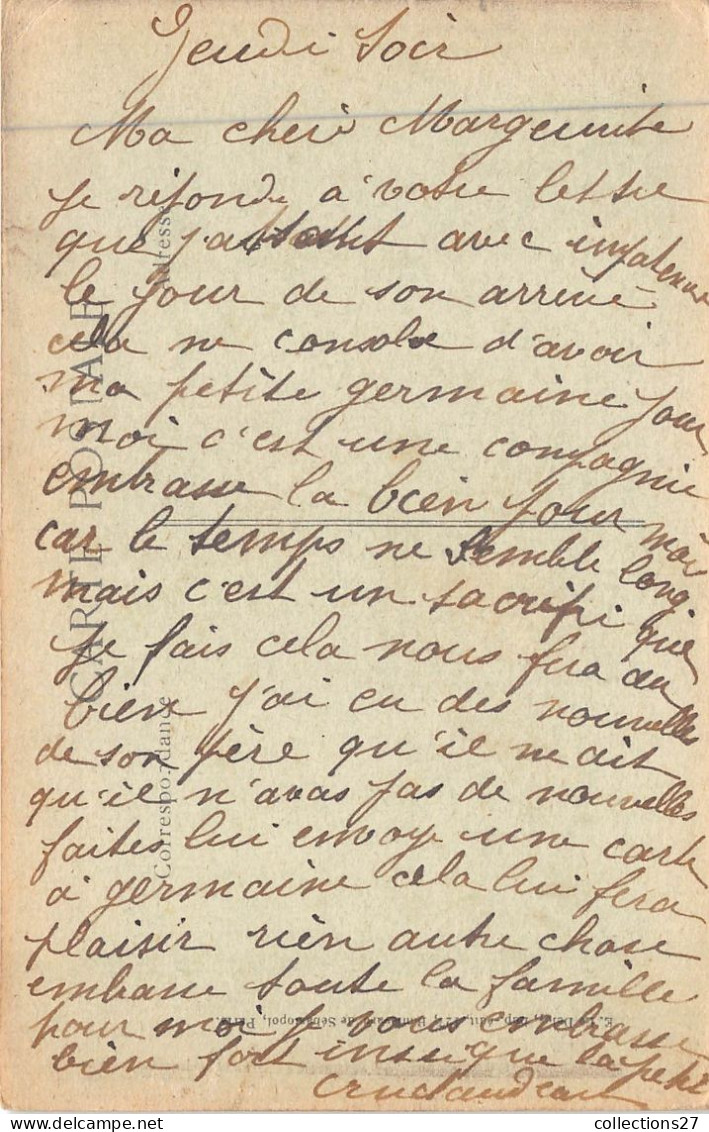 Jeudi Soir
Ma cheri Marguerite
Je réponds a votre lettre
que j'attent avec impatience
le jour de son arrivé
cela me console d'avoir
ma petite germaine pour
moi c'est une compagnie
embrasse la bien pour moi
car le temps me semble long
mais c'est un sacrifi que
Je fais cela nous fera du
bien j'ai eu des nouvelles
de son père qu'il me dit
qu'il n'avas pas de nouvelles
faites lui envoye une carte
a germaine cela lui fera
plaisir rien autre chose
embrasse toute la famille
pour moi Je vous embrasse
bien fort insi que la petite
CARTE POSTALE
Correspondance
Adresse
Boulevard de Sébastopol, PARIS
collections27